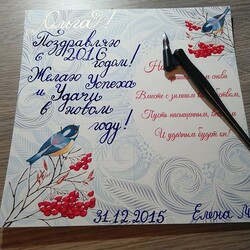 Ольга!
Поздравляю
с 2016
годом!
Желаю Успеха
и Удачи
в новом
году!
Вместе с зимним
Пусть насыщенным,
И удачным будет он!
31.12.2015 Елена